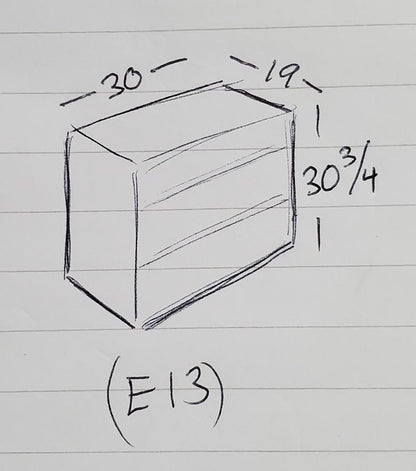 30 19
30 3/4
(E13)